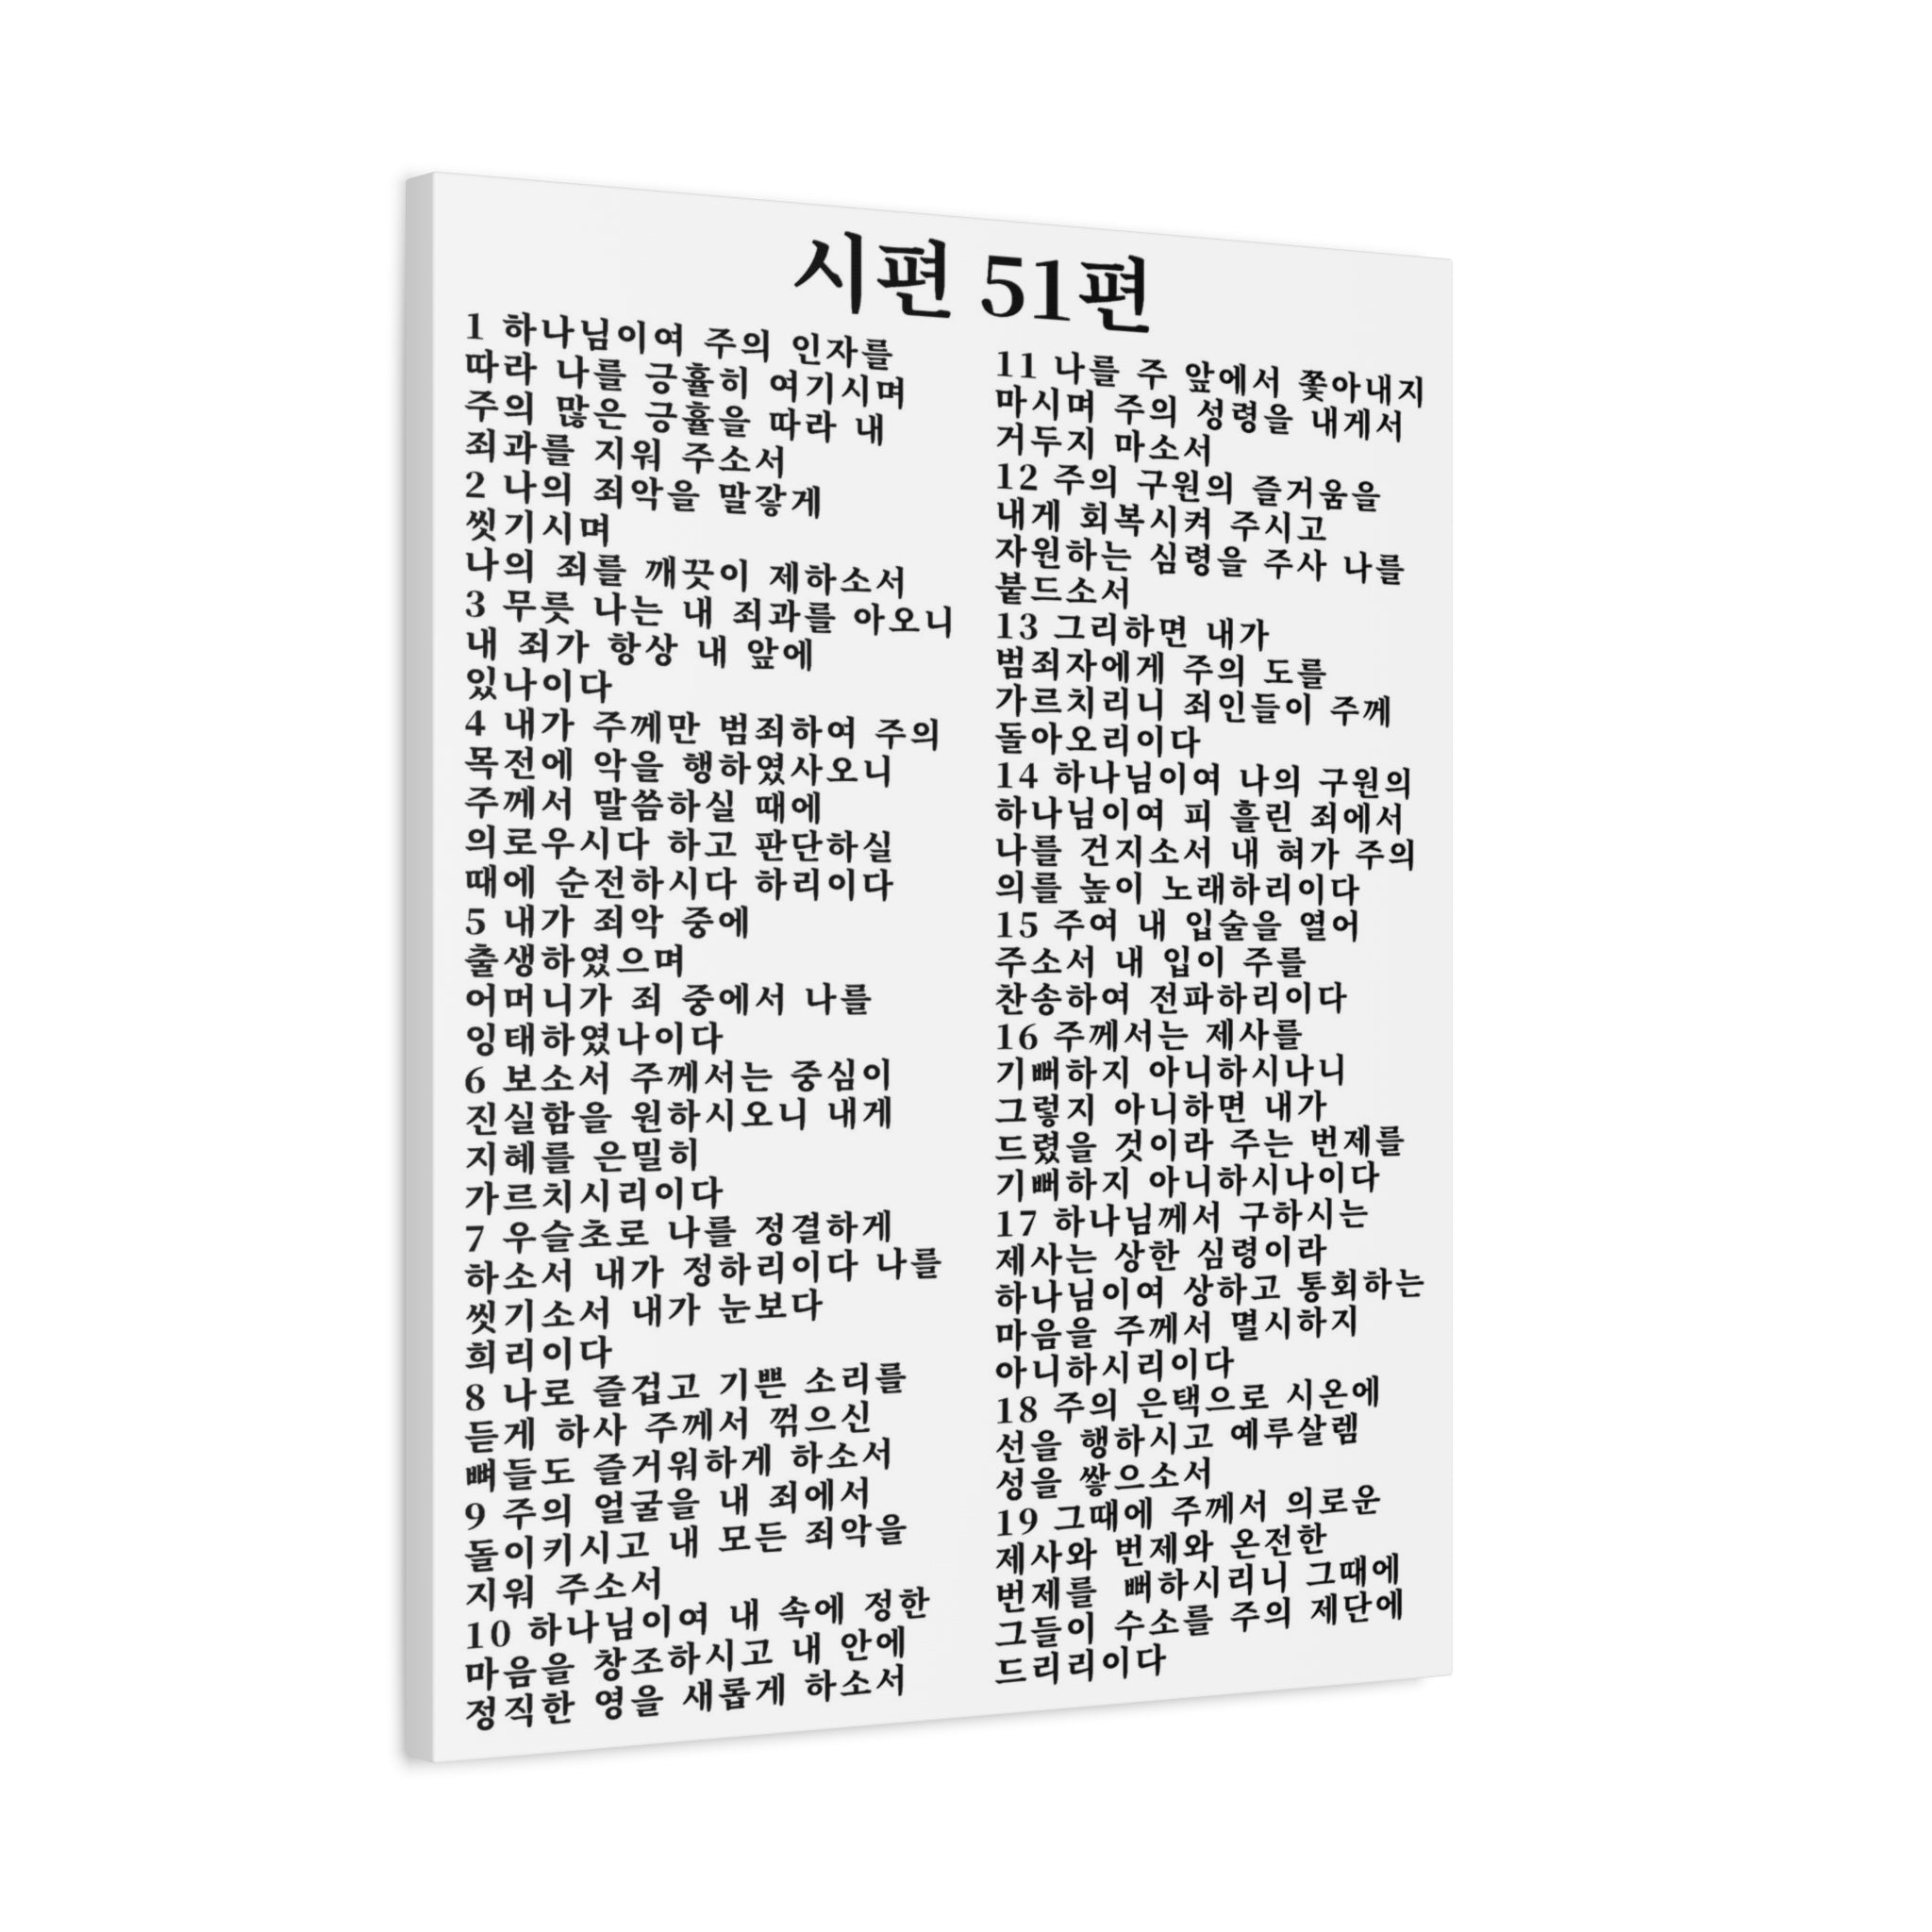 시편 51편
1 하나님이여 주의 인자를
따라 나를 긍휼히 여기시며
주의 많은 긍휼을 따라 내
죄과를 지워 주소서
2 나의 죄악을 말갛게
씻기시며
나의 죄를 깨끗이 제하소서
3 무릇 나는 내 죄과를 아오니
내 죄가 항상 내 앞에
있나이다
4 내가 주께만 범죄하여 주의
목전에 악을 행하였사오니
주께서 말씀하실 때에
의로우시다 하고 판단하실
때에 순전하시다 하리이다
5 내가 죄악 중에
출생하였으며
어머니가 죄 중에서 나를
잉태하였나이다
6 보소서 주께서는 중심이
진실함을 원하시오니 내게
지혜를 은밀히
가르치시리이다
7 우슬초로 나를 정결하게
하소서 내가 정하리이다 나를
씻기소서 내가 눈보다
희리이다
8 나로 즐겁고 기쁜 소리를
듣게 하사 주께서 꺾으신
뼈들도 즐거워하게 하소서
9 주의 얼굴을 내 죄에서
돌이키시고 내 모든 죄악을
지워 주소서
10 하나님이여 내 속에 정한
마음을 창조하시고 내 안에
정직한 영을 새롭게 하소서
11 나를 주 앞에서 쫓아내지
마시며 주의 성령을 내게서
거두지 마소서
12 주의 구원의 즐거움을
내게 회복시켜 주시고
자원하는 심령을 주사 나를
붙드소서
13 그리하면 내가
범죄자에게 주의 도를
가르치리니 죄인들이 주께
돌아오리이다
14 하나님이여 나의 구원의
하나님이여 피 흘린 죄에서
나를 건지소서 내 혀가 주의
의를 높이 노래하리이다
15 주여 내 입술을 열어
주소서 내 입이 주를
찬송하여 전파하리이다
16 주께서는 제사를
기뻐하지 아니하시나니
그렇지 아니하면 내가
드렸을 것이라 주는 번제를
기뻐하지 아니하시나이다
17 하나님께서 구하시는
제사는 상한 심령이라
하나님이여 상하고 통회하는
마음을 주께서 멸시하지
아니하시리이다
18 주의 은택으로 시온에
선을 행하시고 예루살렘
성을 쌓으소서
19 그때에 주께서 의로운
제사와 번제와 온전한
번제를 뻐하시리니 그때에
그들이 수소를 주의 제단에
드리리이다